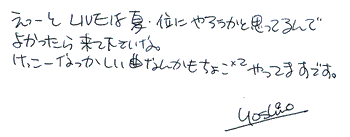 えーと LIVEは夏位にやろうかと思ってるんで
よかったら来て下さいな。
けっこーなつかしい曲なんかもちょこ×2 やってますです。
Yoshio